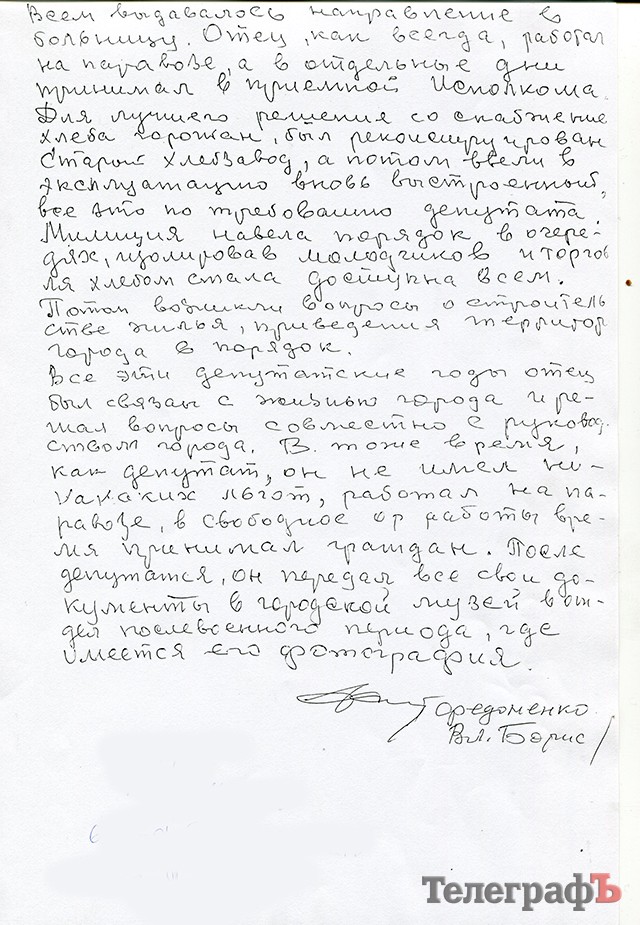 Всем выдавалось направление в
больницу. Отец, как всегда, работал
на паравозе, а в отдельные дни
принимал в приемной Исполкома.
Для лучшего решения со снабжение
хлеба горожан, был реконструирован
Старый Хлебзавод, а потом ввели в
эксплуатацию вновь выстроенный,
все это по требованию депутата.
Милиция навела порядок в очере-
дях, изолировав молодчиков и торгов
ля хлебом стала доступна всем.
Потом возникли вопросы о строитель
стве жилья, приведения территор
города в порядок.
Все эти депутатские годы отец
был связан с жизнью города и ре-
шал вопросы совместно с руковод.
ством города. В тоже время,
как депутат, он не имел ни-
каких льгот, работал на па-
равозе, в свободное от работы вре-
мя принимал граждан. После
депутатся, он передал все свои до-
кументы в городской музей в от-
дел послевоенного периода, где
имеется его фотография.
Вл. Борис
ТелеграфЪ